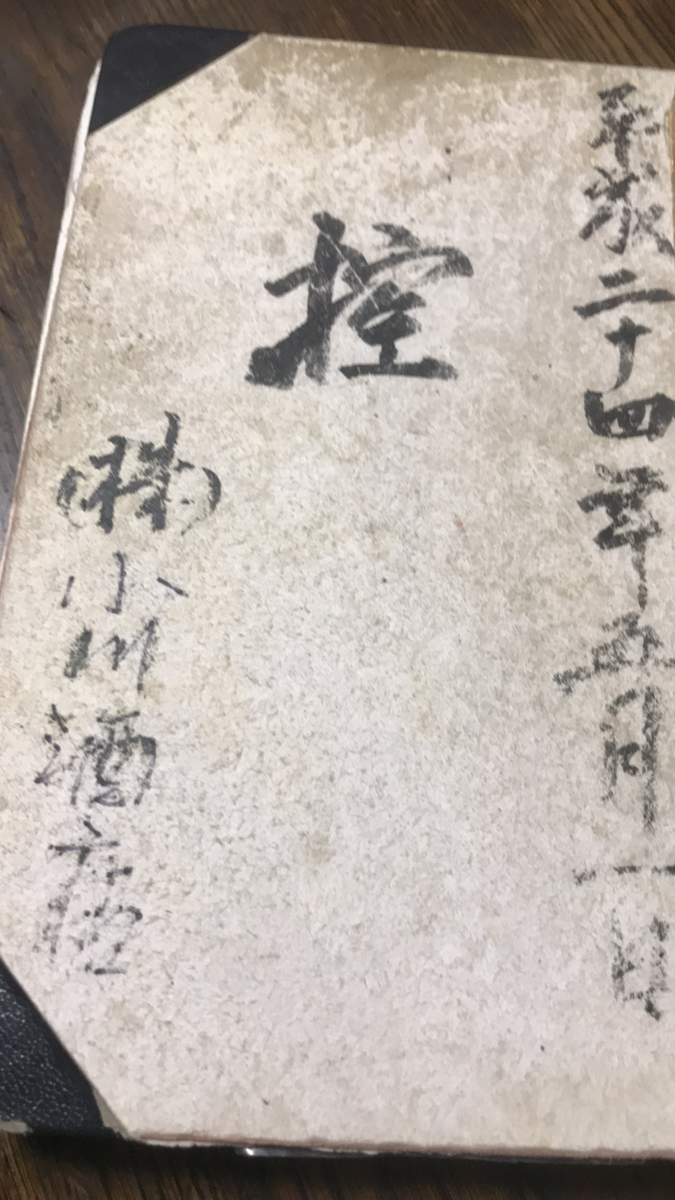 平成二十四年五月一日
控
(株)小川酒店